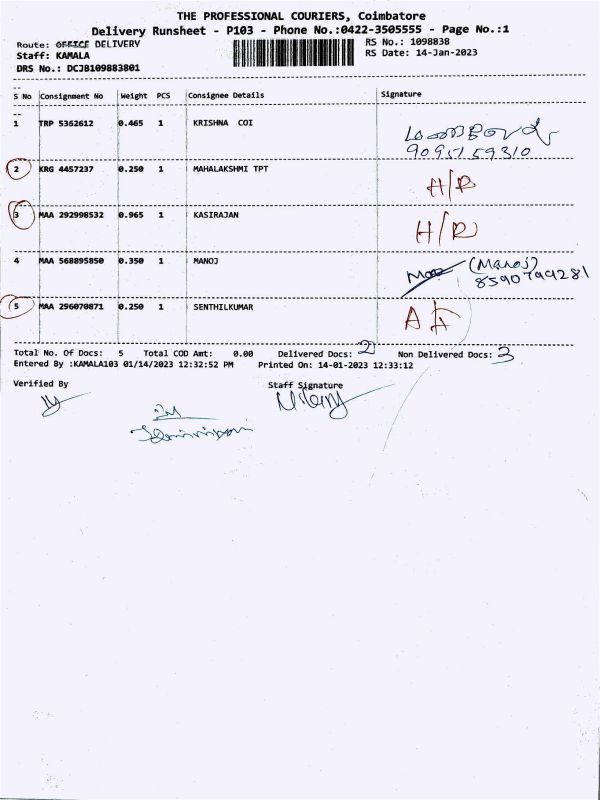 THE PROFESSIONAL COURIERS, Coimbatore
Delivery Runsheet - P103 - Phone No.:0422-3505555 - Page No.:1
Route: OFFICE DELIVERY
RS No.: 1098838
Staff: KAMALA
RS Date: 14-Jan-2023
DRS No.: DCJB109883801
S No Consignment No Weight PCS Consignee Details Signature
1 TRP 5362612 0.465 1 KRISHNA COI
9095159310
2 KRG 4457237 0.250 1 MAHALAKSHMI TPT H/R
3 MAA 292998532 0.965 1 KASIRAJAN H/R
4 MAA 568895850 0.350 1 MANOJ (Manoj)
8590799281
5 MAA 296070871 0.250 1 SENTHILKUMAR
Total No. Of Docs: 5 Total COD Amt: 0.00 Delivered Docs: 2 Non Delivered Docs: 3
Entered By :KAMALA103 01/14/2023 12:32:52 PM Printed On: 14-01-2023 12:33:12
Verified By Staff Signature